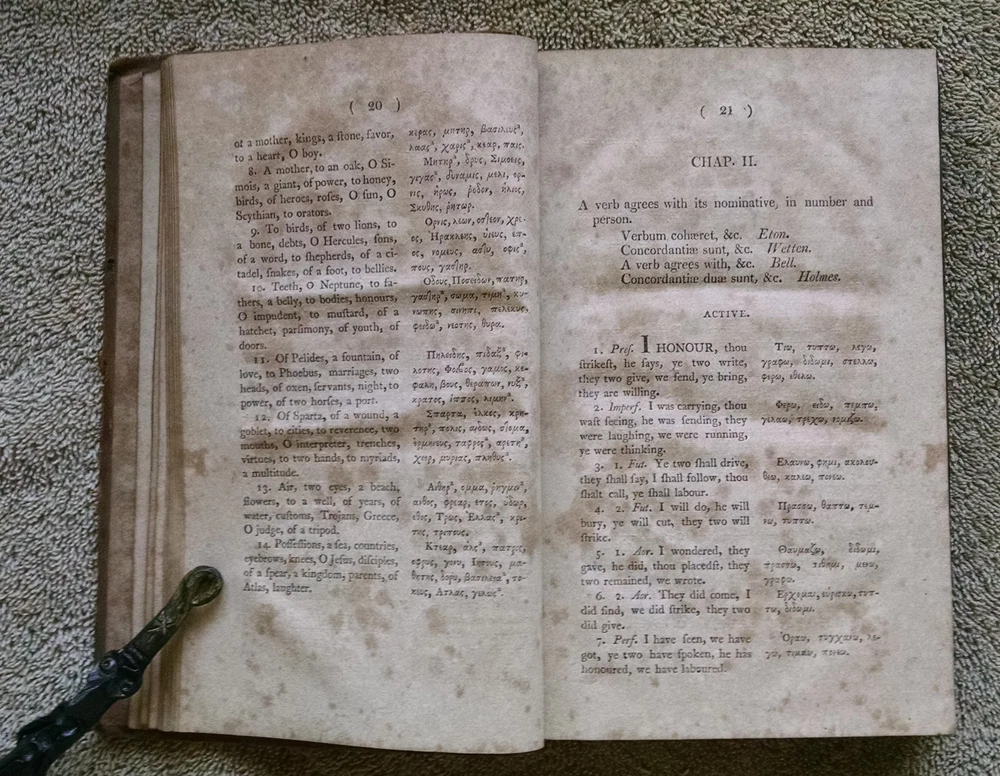 ( 20 )
of a mother, kings, a ſtone, favor,
to a heart, O boy.
8. A mother, to an oak, O Si-
mois, a giant, of power, to honey,
birds, of heroes, roſes, O ſun, O
Scythian, to orators.
9. To birds, of two lions, to
a bone, debts, O Hercules, ſons,
of a word, to ſhepherds, of a ci-
tadel, ſnakes, of a foot, to bellies.
10. Teeth, O Neptune, to fa-
thers, a belly, to bodies, honours,
O impudent, to muſtard, of a
hatchet, parſimony, of youth, of
doors.
11. Of Pelides, a fountain, of
love, to Phoebus, marriages, two
heads, of oxen, ſervants, night, to
power, of two horſes, a port.
12. Of Sparta, of a wound, a
goblet, to cities, to reverence, two
mouths, O interpreter, trenches,
virtues, to two hands, to myriads,
a multitude.
13. Air, two eyes, a beach,
flowers, to a well, of years, of
water, cuſtoms, Trojans, Greece,
O judge, of a tripod.
14. Poſſeſſions, a ſea, countries,
eyebrows, knees, O Jeſus, diſciples,
of a ſpear, a kingdom, parents, of
Atlas, laughter.
κερας, μητηρ, βασιλευς
λαας, χαρις, κεαρ, παις.
Μητηρ, δρυς, Σιμοεις,
γιγας, δυναμις, μελι, ορ-
νις, ἡρως, ῥοδον, ἡλιος,
Σκυθης, ῥητωρ.
Ορνις, λεων, οστεον, χρε-
ος, Ἡρακλεης, υἱευς, επ-
ος, νομευς, αστυ, οφις,
πους, γαστηρ.
Οδους, Ποσειδων, πατηρ,
γαστηρ, σωμα, τιμη, κυ-
νωπης, σινηπι, πελεκυς,
φειδω, νεοτης, θυρα.
Πηλειδης, πιδαξ, φι-
λοτης, Φοιβος, γαμος, κε-
φαλη, βους, θεραπων, νυξ,
κρατος, ἱππος, λιμην.
Σπαρτα, ἑλκος, κρη-
τηρ, πολις, αιδως, στομα,
ἑρμηνευς, ταφρος, αρετη,
χειρ, μυριας, πληθυς.
Αιθηρ, ομμα, ῥηγμιν,
ανθος, φρεαρ, ετος, ὑδωρ,
εθος, Τρως, Ἑλλας, κρι-
της, τριπους.
Κτεαρ, ἁλς, πατρις,
οφρυς, γονυ, Ιησους, μα-
θητης, δορυ, βασιλεια, το-
κευς, Ατλας, γελως.
( 21 )
CHAP. II.
A verb agrees with its nominative, in number and
person.
Verbum cohæret, &c. Eton.
Concordantiæ sunt, &c. Wetten.
A verb agrees with, &c. Bell.
Concordantiæ duæ sunt, &c. Holmes.
ACTIVE.
1. Preſ. I HONOUR, thou
ſtrikeſt, he ſays, ye two write,
they two give, we ſend, ye bring,
they are willing.
2. Imperf. I was carrying, thou
waſt ſeeing, he was ſending, they
were laughing, we were running,
ye were thinking.
3. 1. Fut. Ye two ſhall drive,
they ſhall ſay, I ſhall follow, thou
ſhalt call, ye ſhall labour.
4. 2. Fut. I will do, he will
bury, ye will cut, they two will
ſtrike.
5. 1. Aor. I wondered, they
gave, he did, thou placedſt, they
two remained, we wrote.
6. 2. Aor. They did come, I
did find, we did ſtrike, they two
did give.
7. Perf. I have ſeen, we have
got, ye two have ſpoken, he has
honoured, we have laboured.
Τιω, τυπτω, λεγω,
γραφω, διδωμι, στελλω,
φερω, εθελω.
Φερω, ειδω, πεμπω,
γελαω, τρεχω, νομιζω.
Ελαυνω, φημι, ακολου-
θεω, καλεω, πονεω.
Πρασσω, θαπτω, τεμ-
νω, τυπτω.
Θαυμαζω, διδωμι,
πρασσω, τιθημι, μενω,
γραφω.
Ερχομαι, εὑρισκω, τυπ-
τω, διδωμι.
Ὁραω, τυγχανω, λε-
γω, τιμαω, πονεω.